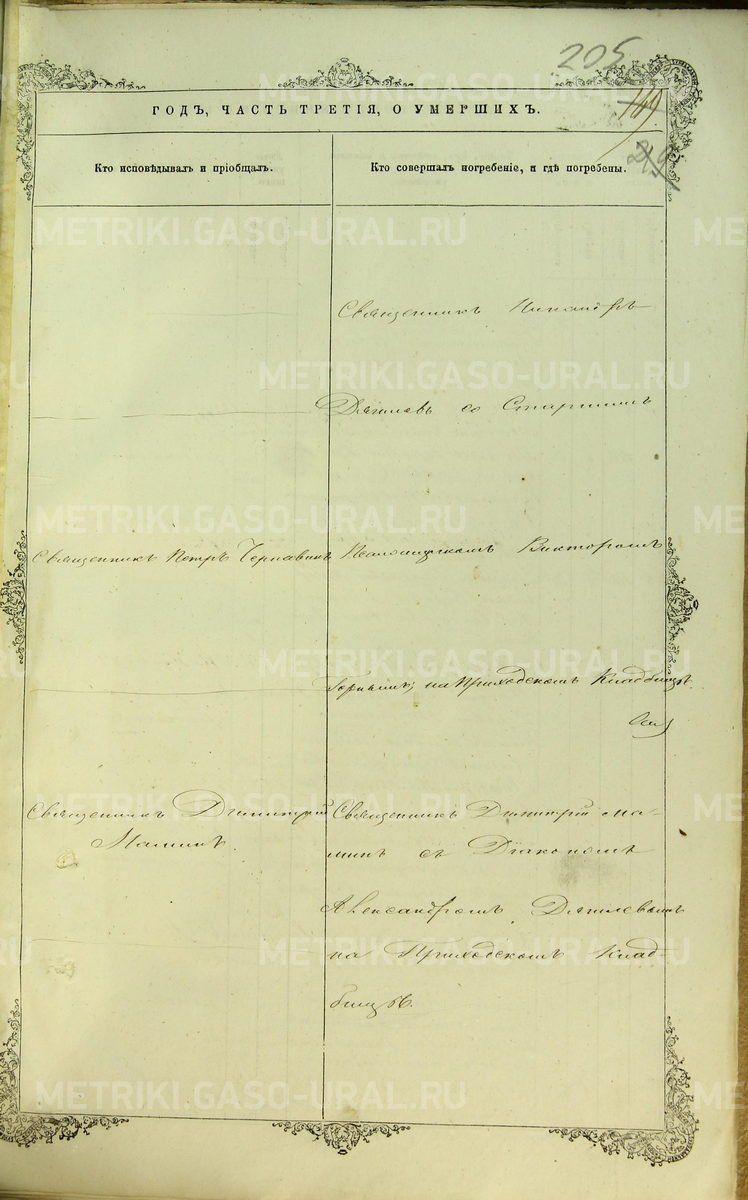 205
169
ГОДЪ, ЧАСТЬ ТРЕТІЯ, О УМЕРШИХЪ.
Кто исповѣдывалъ и пріобщалъ.
Кто совершалъ погребеніе, и гдѣ погребены.
Священникъ Никандръ
Дягилевъ со Старшимъ
Священникъ Петръ Чернавинъ
Псаломщикомъ Викторомъ
на Приходскомъ Кладбищѣ.
Священникъ Димитрій
Маминъ.
Священникъ Димитрій Ма-
минъ съ Діакономъ
Александромъ Дягилевымъ
на Приходскомъ Клад-
бищѣ.
METRIKI.GASO-URAL.RU